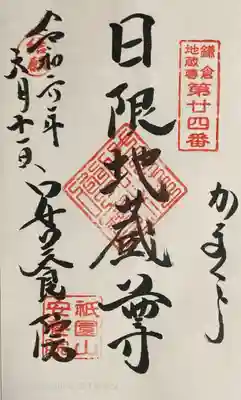 鎌倉
地蔵尊
第廿四番
かまくら
日限地蔵尊
祇園山
安養院
令和六年
六月十一日
安養院